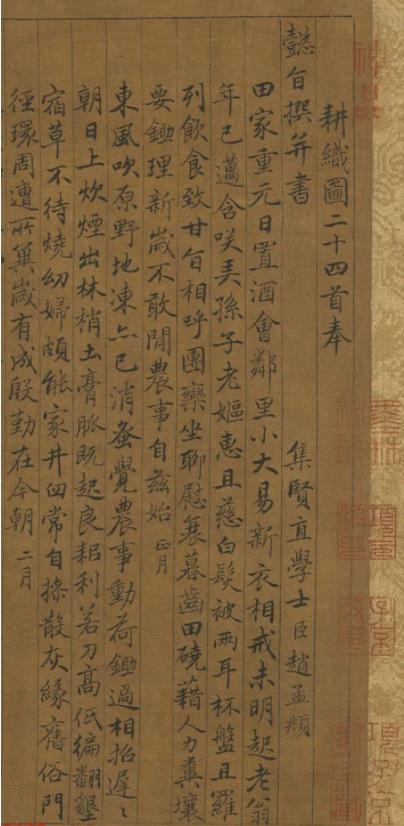 耕織圖二十四首奉
懿旨撰并書 集賢直學士臣趙孟頫
田家重元日置酒會鄰里小大易新衣相戒未明起老翁
年已邁含咲弄孫子老嫗惠且慈白髮被兩耳杯盤且羅
列飲食致甘旨相呼團欒坐聊慰衰暮齒田磽藉人力糞壤
要鋤理新歲不敢閒農事自茲始 正月
東風吹原野地凍亦已消蚤覺農事動荷鋤過相招遲〻
朝日上炊煙出林梢土膏脈既起良耜利若刀高低徧翻墾
宿草不待燒幼婦頗能家井臼常自操散灰緣舊俗門
徑環周遭所冀歲有成殷勤在今朝 二月
神品